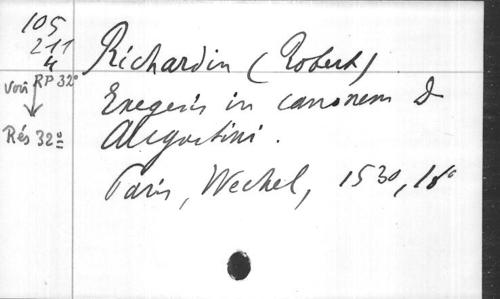 105
211
4
Richardin (Robert)
voir RP 32°
Exegesis in canonem D
Rés 32°
Augustini.
Paris, Wechel, 1530, 16°